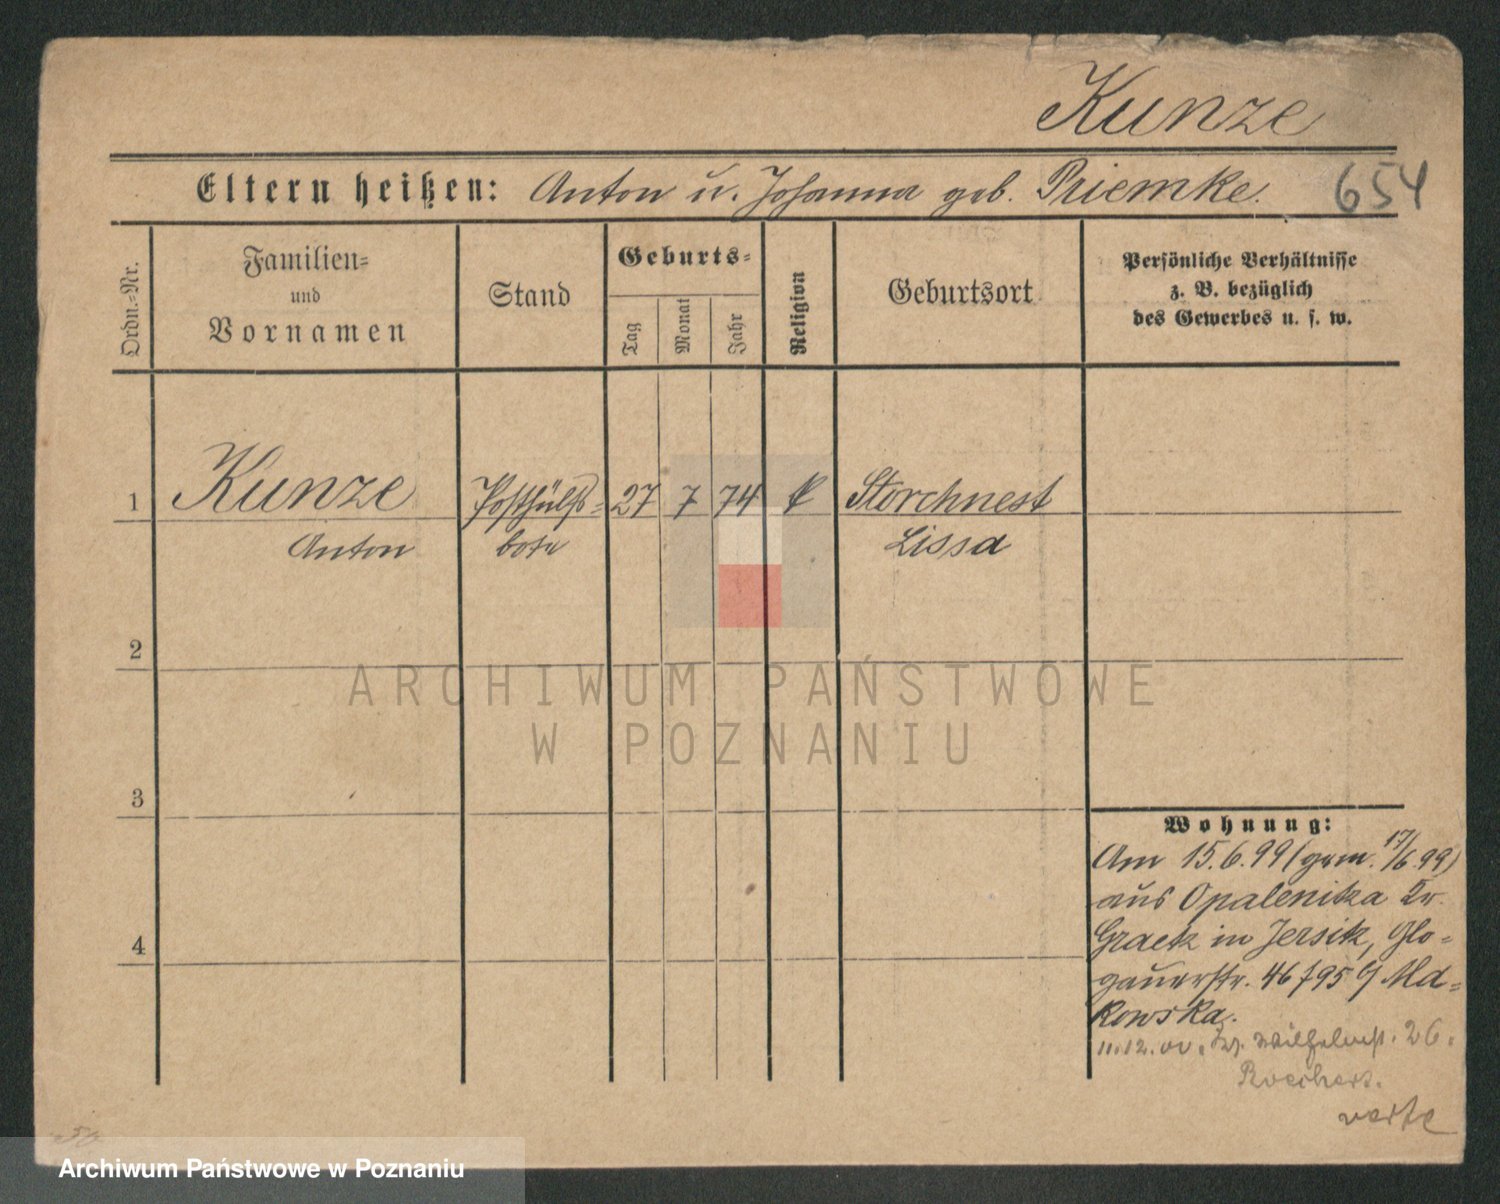 Kunze
Eltern heißen: Anton u. Johanna geb. Priemke. 654
Ordn.-Nr.
Familien-
und
Vornamen
Stand
Geburts-
Tag
Monat
Jahr
Religion
Geburtsort
Persönliche Verhältnisse
z. B. bezüglich
des Gewerbes u. s. w.
1 Kunze Posthülfs- 27 7 74 k Storchnest
Anton bote Lissa
2
3
4
ARCHIWUM PAŃSTWOWE
W POZNANIU
Wohnung:
Am 15.6.99 (gem. 17/6.99)
aus Opalenitza Kr.
Graetz in Jersitz, Glo-
gauerstr. 46 b/ Ma-
kowska.
11.12.00. Wilhelmst. 26.
verte
Archiwum Państwowe w Poznaniu